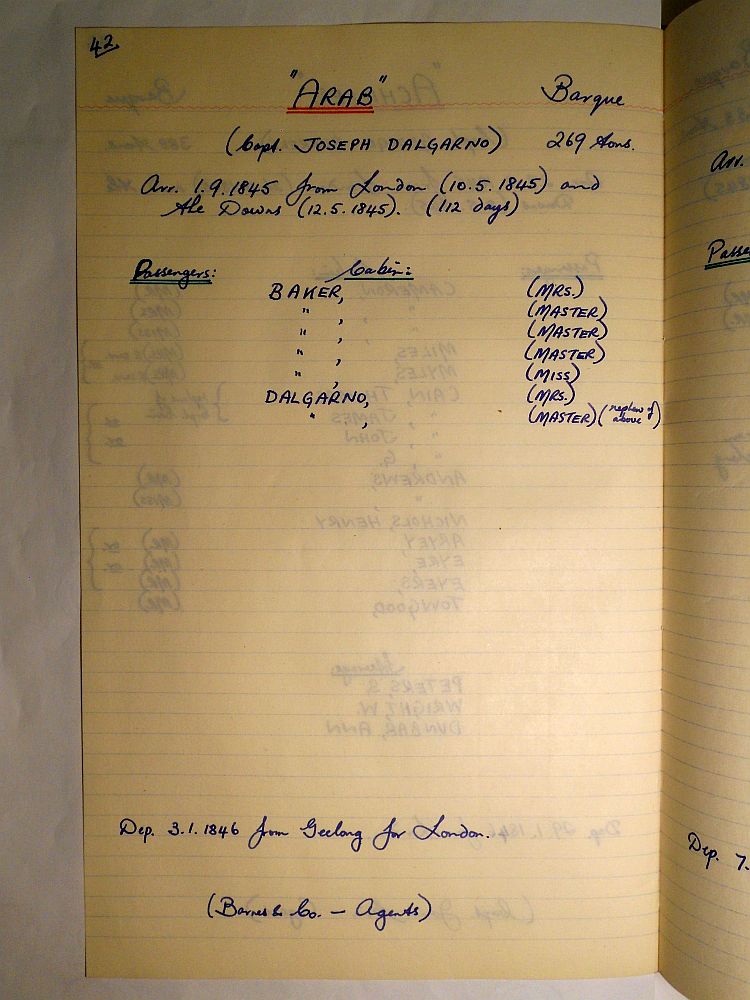 42.
"ARAB" Barque
(Capt. JOSEPH DALGARNO) 269 tons.
Arr. 1.9.1845 from London (10.5.1845) and
the Downs (12.5.1845). (112 days)
Passengers: Cabin:
BAKER, (MRS.)
" , (MASTER)
" , (MASTER)
" , (MASTER)
" , (MISS)
DALGARNO, (MRS.)
" , (MASTER) (nephew of above)
Dep. 3.1.1846 from Geelong for London.
(Barnes & Co. – Agents)
Arr.
Dep. 7.